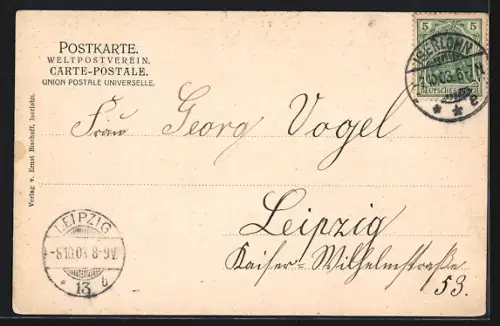 POSTKARTE.
WELTPOSTVEREIN.
CARTE-POSTALE.
UNION POSTALE UNIVERSELLE.
5 5
ISERLOHN
Frau Georg Vogel
Leipzig
Kaiser-Wilhelmstraße
53.
LEIPZIG
-8.10.03. 8-9V.
* 13 b
Verlag v. Ernst Bischoff, Iserlohn.